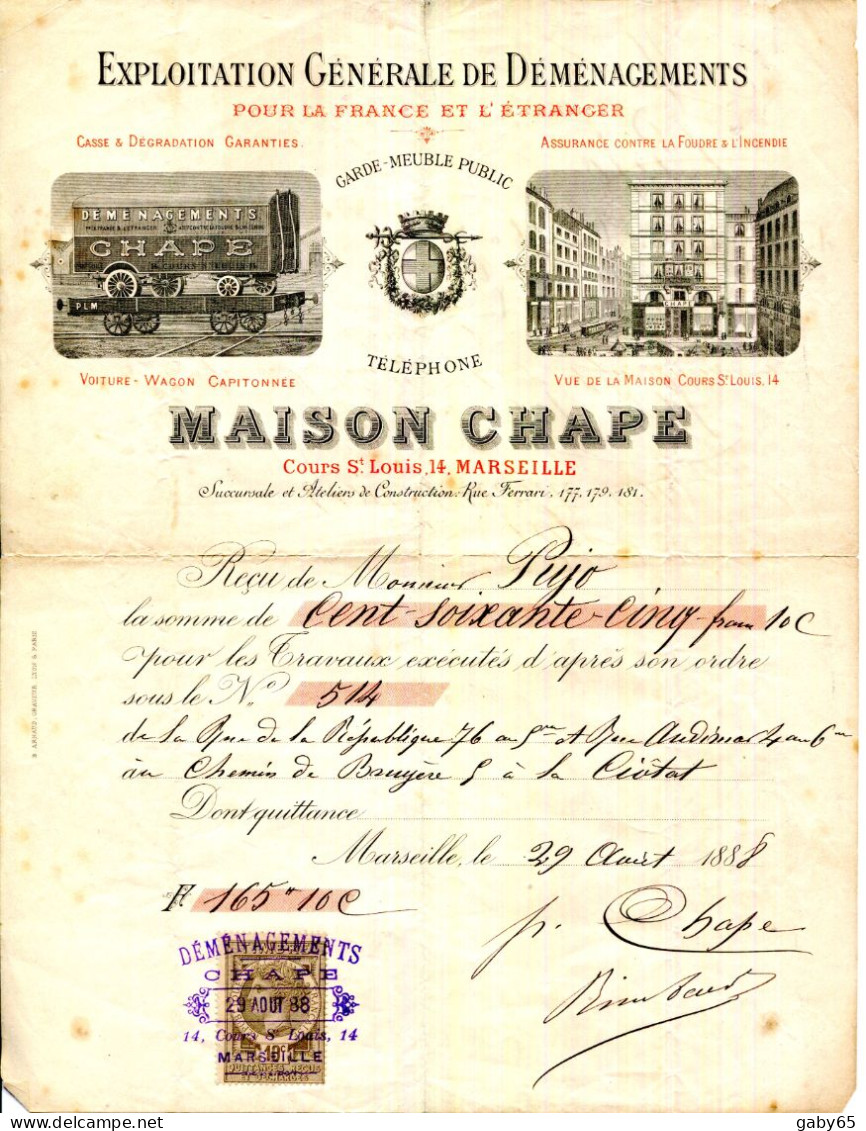 EXPLOITATION GÉNÉRALE DE DÉMÉNAGEMENTS
POUR LA FRANCE ET L'ÉTRANGER
CASSE & DÉGRADATION GARANTIES.
ASSURANCE CONTRE LA FOUDRE & L'INCENDIE
GARDE-MEUBLE PUBLIC
DÉMÉNAGEMENTS
CHAPE
PLM
CHAPE
TÉLÉPHONE
VOITURE-WAGON CAPITONNÉE
VUE DE LA MAISON COURS St LOUIS, 14
MAISON CHAPE
Cours St Louis, 14, MARSEILLE
Succursale et Ateliers de Construction: Rue Ferrari, 177, 179, 181.
Reçu de Monsieur Pujo
la somme de Cent-Soixante-Cinq francs 10 C
pour les Travaux exécutés d'après son ordre
sous le No 514
de la Rue de la République 76 au 5me et Rue 4 au 6me
au Chemin de Bruyère 5 à la Ciotat
Dont quittance
Marseille, le 29 Août 1888
F. 165 " 10 C
p. Chape
Rimbaud
DÉMÉNAGEMENTS
CHAPE
29 AOUT 88
14, Cours St Louis, 14
MARSEILLE
10c
QUITTANCES, REÇUS
ET DÉCHARGES
gaby65